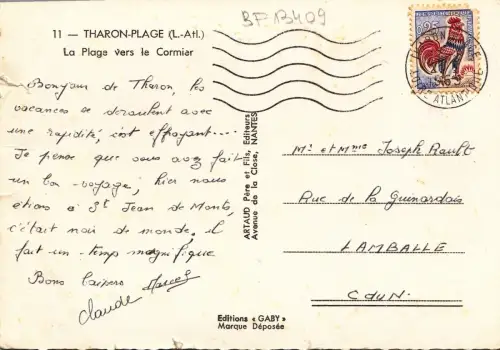 BP B409
11 — THARON-PLAGE (L.-Atl.)
La Plage vers le Cormier
Bonjour de Tharon, les
vacances se déroulent avec
une rapidité, c'est effrayant....
Je pense que vous avez fait
un bon voyage, hier nous
étions à St Jean de Monts,
c'était noir de monde, il
fait un temps magnifique
Bons baisers Marcel
Claude
ARTAUD Père et Fils, Editeurs
Avenue de la Close, NANTES
0,25
LOIRE ATLANTIQUE
Mr et Mme Joseph Rault
Rue de la Guinardais
LAMBALLE
CduN.
Editions « GABY »
Marque Déposée